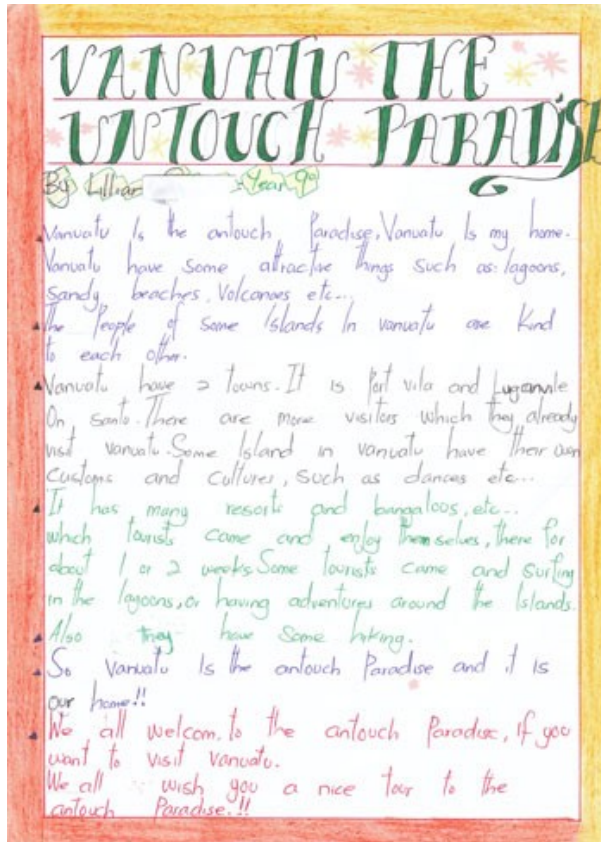 VANUATU THE
UNTOUCH PARADISE
By Lillian Year 9
Vanuatu Is the antouch Paradise, Vanuatu Is my home.
Vanuatu have some attractive things such as: lagoons,
sandy beaches, Volcanoes etc...
The People of some Islands In vanuatu are Kind
to each other.
Vanuatu have 2 towns. It is Port vila and Luganville
On Santo. There are more visitors which they already
visit vanuatu. Some Island in vanuatu have their own
Customs and Cultures, such as dances etc...
It has many resorts and bangaloos, etc...
which tourists came and enjoy themselves, there for
about 1 or 2 weeks. Some tourists came and surfing
in the lagoons, or having adventures around the Islands.
Also they have some hiking.
So Vanuatu Is the antouch Paradise and it is
our home!!
We all welcom. to the antouch Paradise, if you
want to visit Vanuatu.
We all wish you a nice tour to the
antouch Paradise.!!